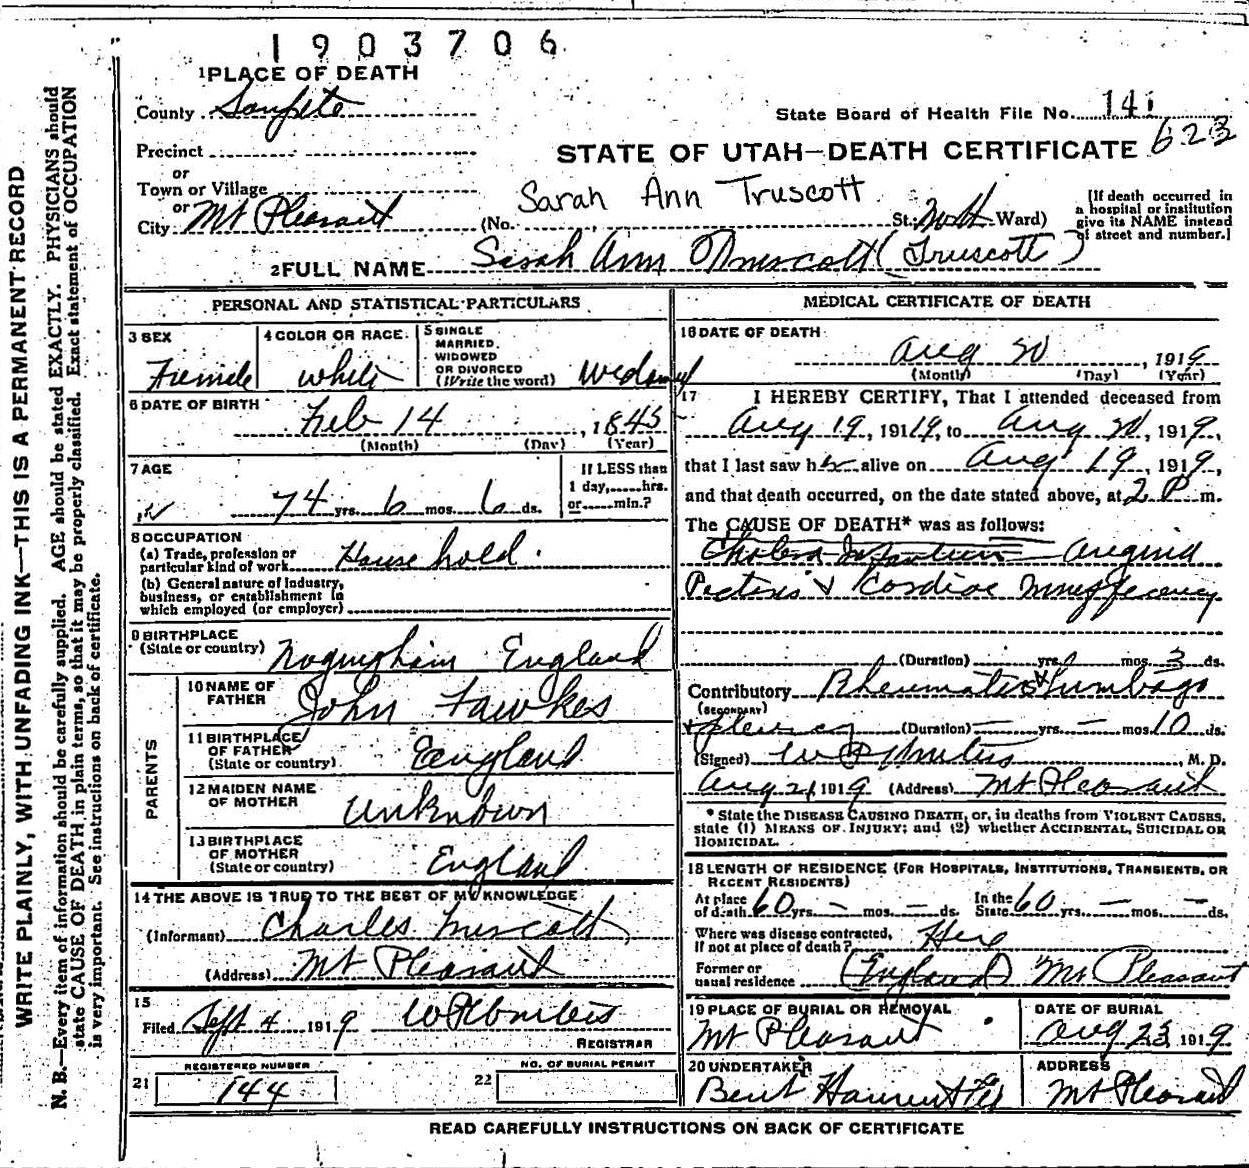 1903706
1 PLACE OF DEATH
County Sanpete
State Board of Health File No. 141
623
Precinct
STATE OF UTAH—DEATH CERTIFICATE
or
Town or Village
Sarah Ann Truscott
or
City Mt Pleasant (No. St: North Ward)
[If death occurred in a hospital or institution give its NAME instead of street and number.]
2 FULL NAME Sarah Ann Truscott (Truscott)
PERSONAL AND STATISTICAL PARTICULARS
3 SEX Female
4 COLOR OR RACE: White
5 SINGLE MARRIED, WIDOWED OR DIVORCED (Write the word)
6 DATE OF BIRTH Feb 14, 1845
(Month) (Day) (Year)
7 AGE
74 yrs. 6 mos. 6 ds.
If LESS than 1 day,......hrs. or......min.?
8 OCCUPATION
(a) Trade, profession or particular kind of work House hold.
(b) General nature of industry, business, or establishment in which employed (or employer)
9 BIRTHPLACE
(State or country) England
PARENTS
10 NAME OF FATHER John Fawkes
11 BIRTHPLACE OF FATHER (State or country) England
12 MAIDEN NAME OF MOTHER Unknown
13 BIRTHPLACE OF MOTHER (State or country) England
14 THE ABOVE IS TRUE TO THE BEST OF MY KNOWLEDGE
(Informant) Charles Truscott
(Address) Mt Pleasant
15
Filed Sept 4 1919
REGISTRAR
REGISTERED NUMBER
21 144
NO. OF BURIAL PERMIT
22
MEDICAL CERTIFICATE OF DEATH
16 DATE OF DEATH
Aug 20, 1919
(Month) (Day) (Year)
17 I HEREBY CERTIFY, That I attended deceased from
Aug 19, 19119, to Aug 20, 1919,
that I last saw her alive on Aug 19, 1919,
and that death occurred, on the date stated above, at 2 P m.
The CAUSE OF DEATH* was as follows:
Cholera Infantum Angina
Pectoris & Cardiac
(Duration) yrs. mos. 3 ds.
Contributory Rheumatism & Lumbago
(SECONDARY)
& pleurisy (Duration) — yrs. — mos. 10 ds.
(Signed) M. D.
Aug 21, 1919 (Address) Mt Pleasant
* State the DISEASE CAUSING DEATH, or, in deaths from VIOLENT CAUSES, state (1) MEANS OF INJURY; and (2) whether ACCIDENTAL, SUICIDAL OR HOMICIDAL.
18 LENGTH OF RESIDENCE (FOR HOSPITALS, INSTITUTIONS, TRANSIENTS, OR RECENT RESIDENTS)
At place of death 60 yrs. — mos. — ds. In the State 60 yrs. — mos. — ds.
Where was disease contracted, If not at place of death? Here
Former or usual residence (England) Mt Pleasant
19 PLACE OF BURIAL OR REMOVAL Mt Pleasant
DATE OF BURIAL Aug 23 1919
20 UNDERTAKER
ADDRESS Mt Pleasant
READ CAREFULLY INSTRUCTIONS ON BACK OF CERTIFICATE
WRITE PLAINLY, WITH UNFADING INK—THIS IS A PERMANENT RECORD
N. B.—Every item of information should be carefully supplied. AGE should be stated EXACTLY. PHYSICIANS should
state CAUSE OF DEATH in plain terms, so that it may be properly classified. Exact statement of OCCUPATION
is very important. See instructions on back of certificate.